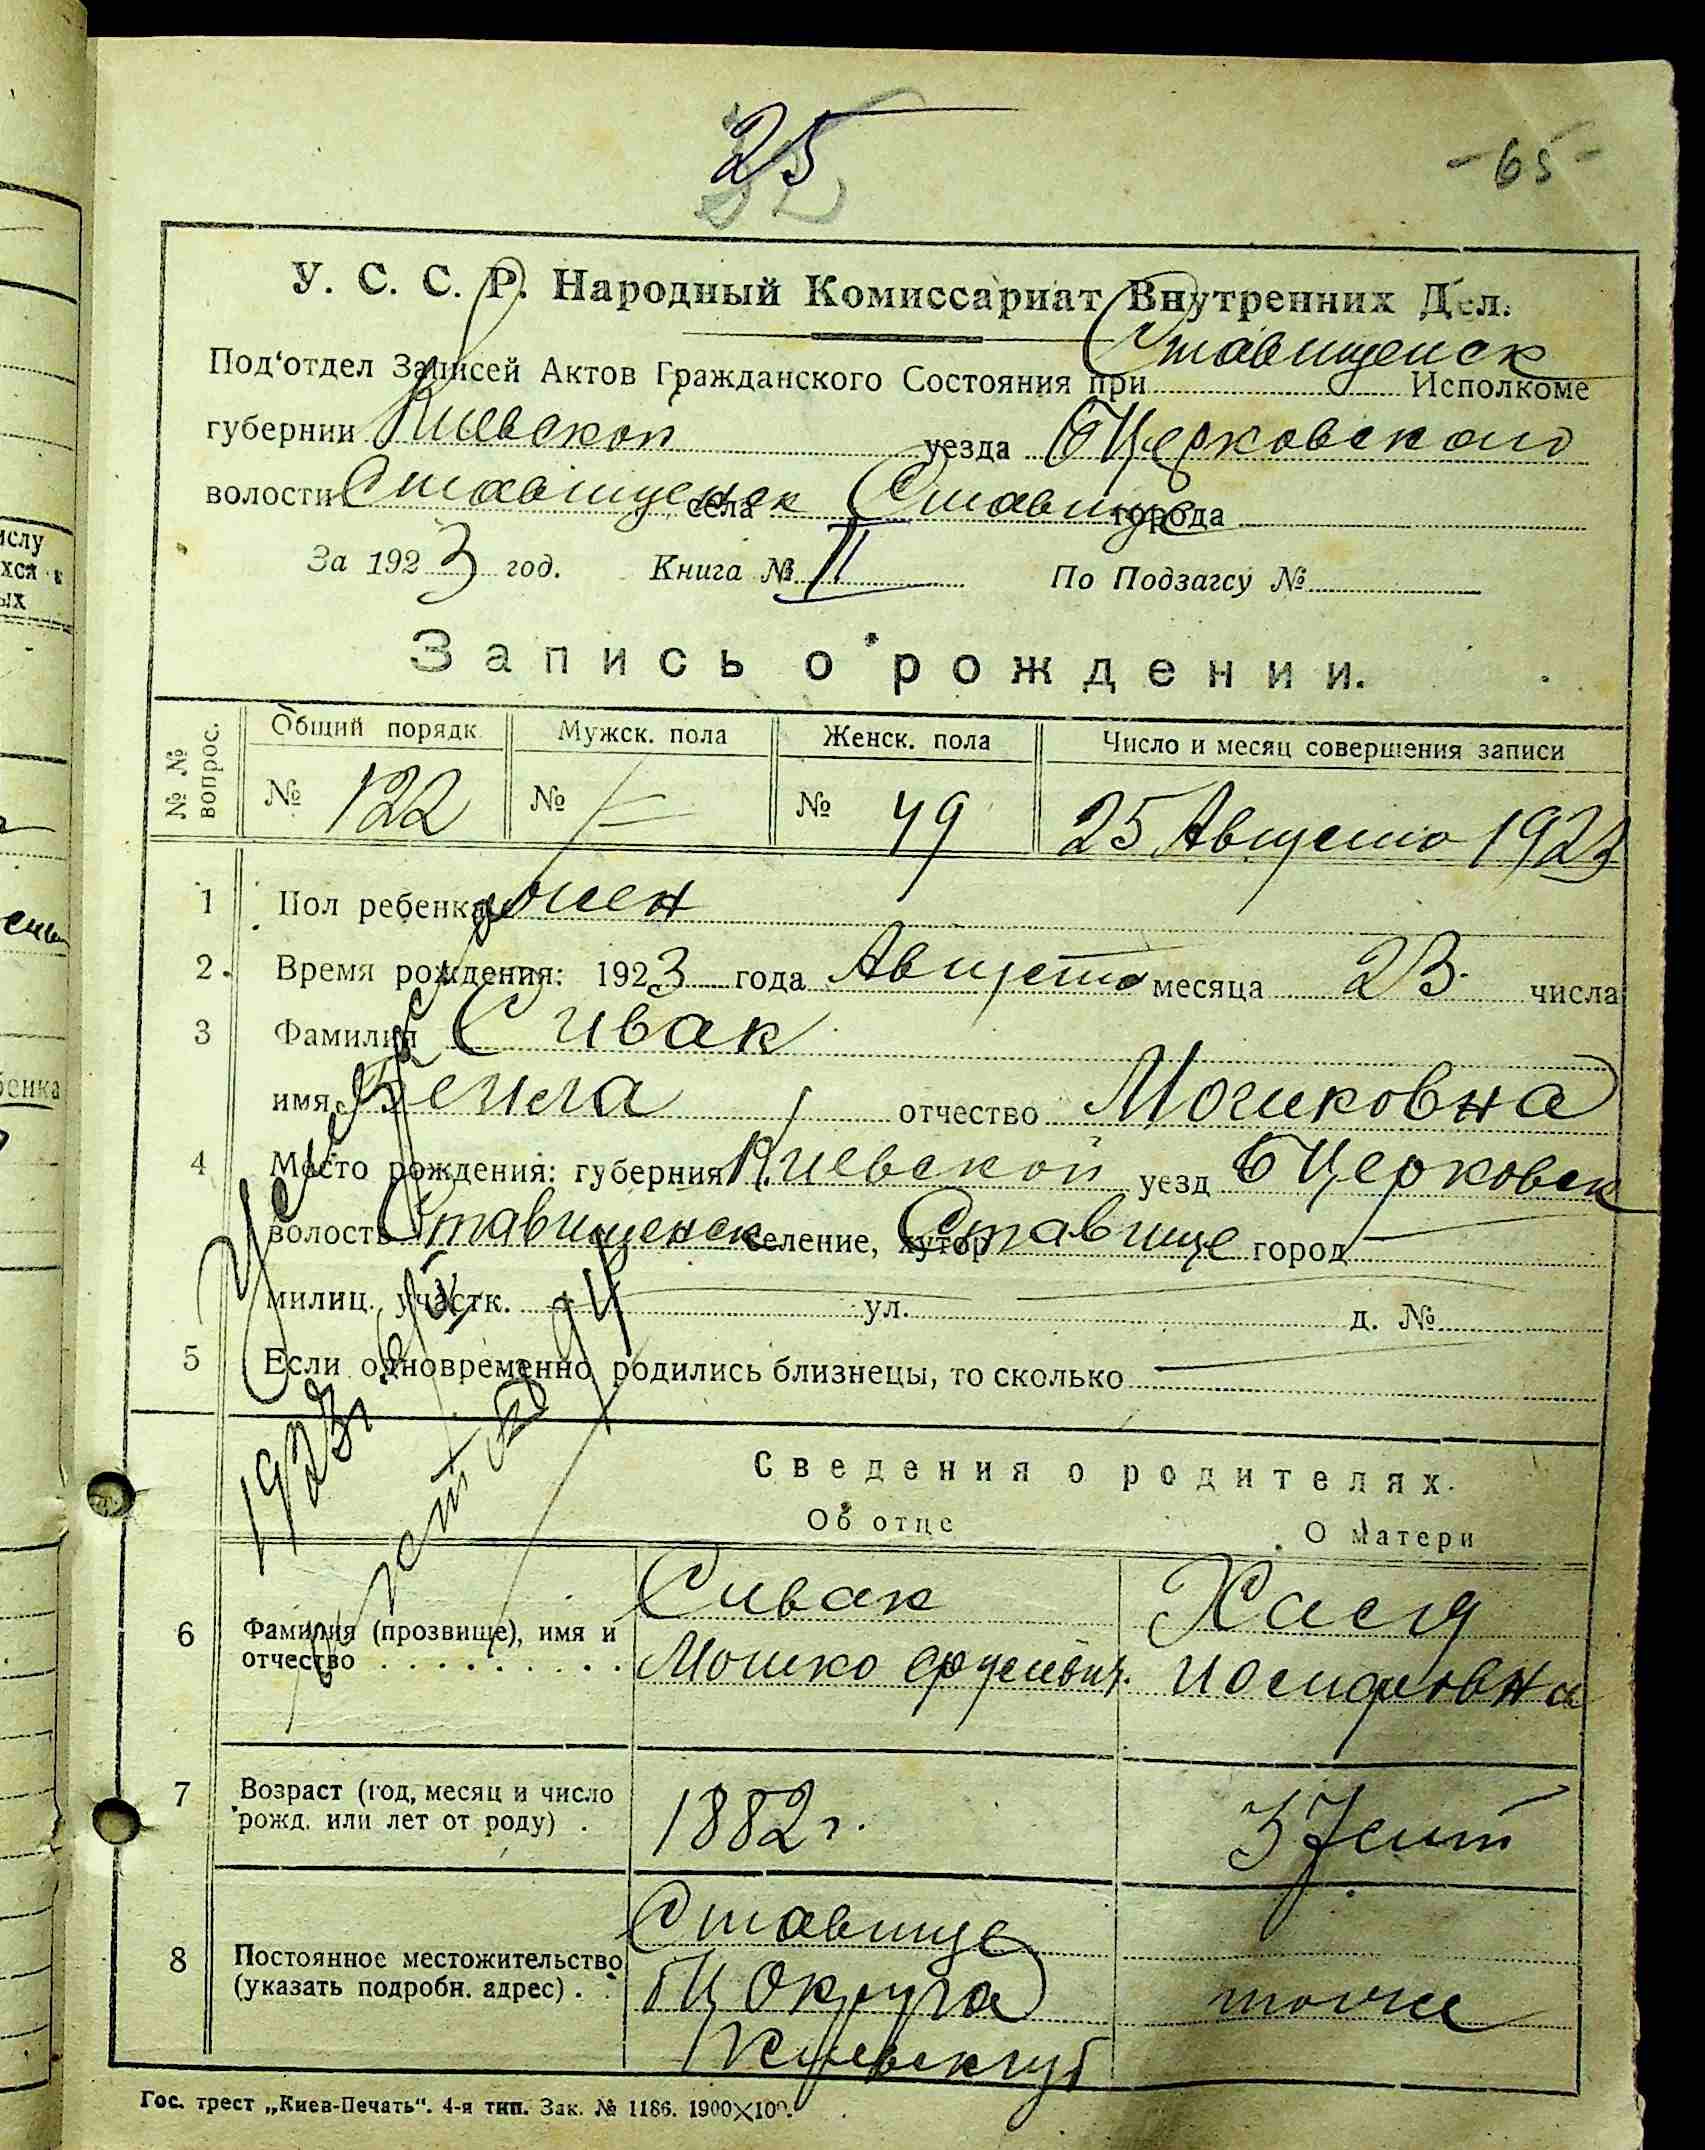 25
- 65 -
У. С. С. Р. Народный Комиссариат Внутренних Дел.
Под'отдел Записей Актов Гражданского Состояния при Ставищенск Исполкоме
губернии Киевской уезда БЦерковского
волости Ставищенск села Ставище города
За 1923 год. Книга № II По Подзагсу №
Запись о рождении.
№ № вопрос. Общий порядк Мужск. пола Женск. пола Число и месяц совершения записи
№ 122 № — № 49 25 Августа 1923
1 Пол ребенка жен
2. Время рождения: 1923 года Августа месяца 23 числа
3 Фамилия Сивак
имя Бейла отчество Мошковна
4 Место рождения: губерния Киевской уезд БЦерковск
волость Ставищенск селение, хутор Ставище город —
милиц. участк. — ул. — д. №
5 Если одновременно родились близнецы, то сколько —
1923г.
Сведения о родителях.
Об отце О матери
6 Фамилия (прозвище), имя и отчество Сивак Хася
Мошко Иосифовна
7 Возраст (год, месяц и число рожд. или лет от роду) . 1882 г. 37 лет
8 Постоянное местожительство (указать подробн. адрес) . Ставище
БЦ Округа тоже
Киевск губ
Гос. трест „Киев-Печать“. 4-я тип. Зак. № 1186. 1900×100.